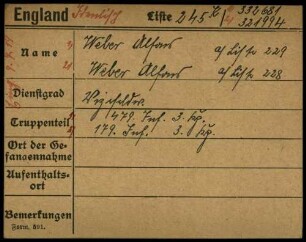 England Liste 245 332681
321994
Name Weber Alfons a/ Liste 229
Weber Alfons a/ Liste 228
Dienstgrad Vizefeldw.
Truppenteil 1) 479. Inf. 3. Kp.
2) 179. Inf. 3. Kp.
Ort der Ge-
fangennahme
Aufenthalts-
ort
Bemerkungen
Form. 801.